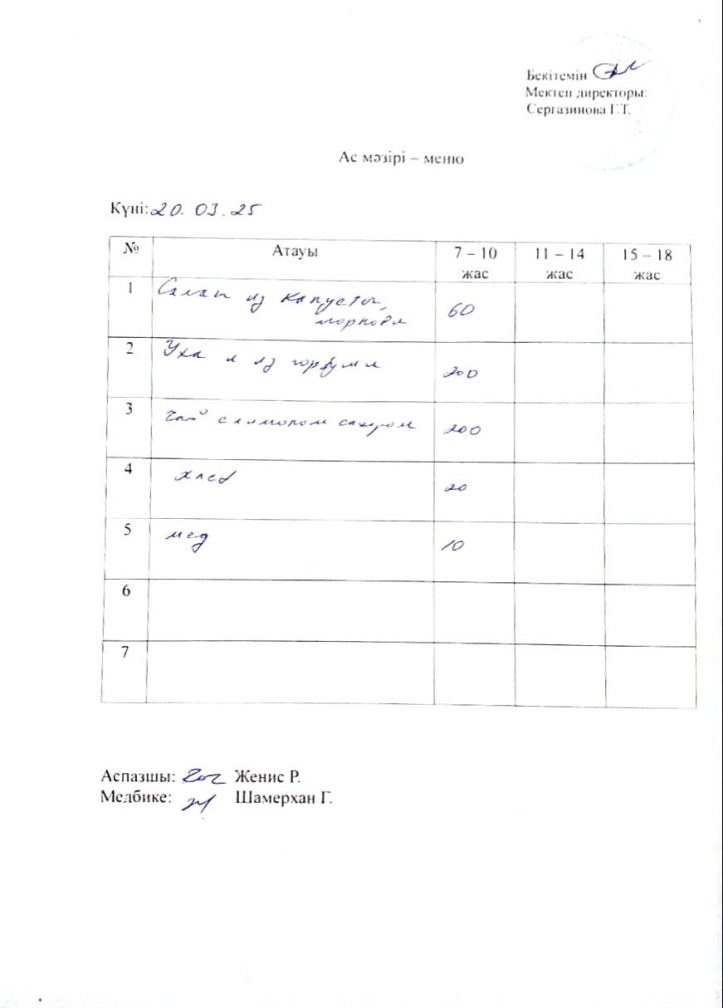 Бекітемін
Мектеп директоры:
Сергазинова Г.Т.
Ас мәзірі – меню
Күні: 20.03.25
№ Атауы 7 – 10 жас 11 – 14 жас 15 – 18 жас
1 Салат из капусты, моркови 60
2 Уха из горбуши 200
3 Чай с лимоном сахаром 200
4 хлеб 20
5 мёд 10
6
7
Аспазшы: Женис Р.
Медбике: Шамерхан Г.